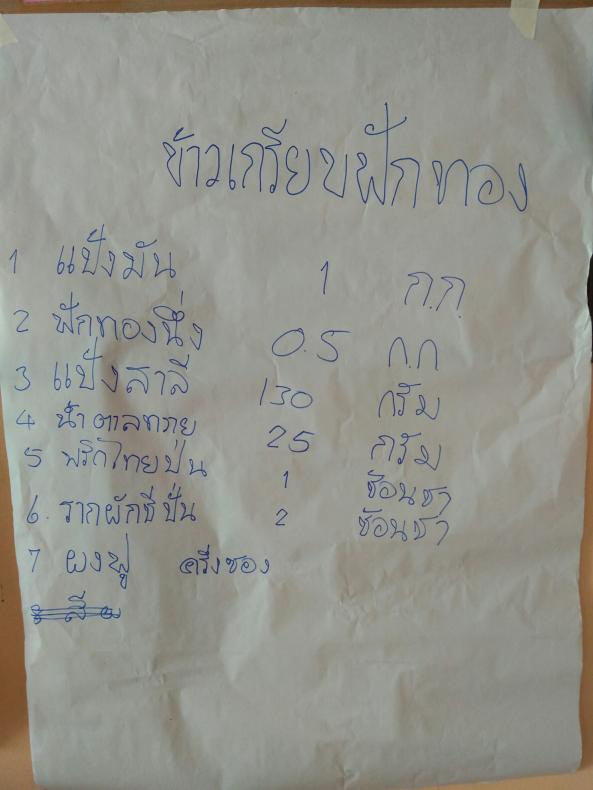 ข้าวเกรียบฟักทอง
1 แป้งมัน 1 ก.ก.
2 ฟักทองนึ่ง 0.5 ก.ก
3 แป้งสาลี 130 กรัม
4 น้ำตาลทราย 25 กรัม
5 พริกไทยป่น 1 ช้อนชา
6. รากผักชีปั่น 2 ช้อนชา
7 ผงฟู ครึ่งซอง